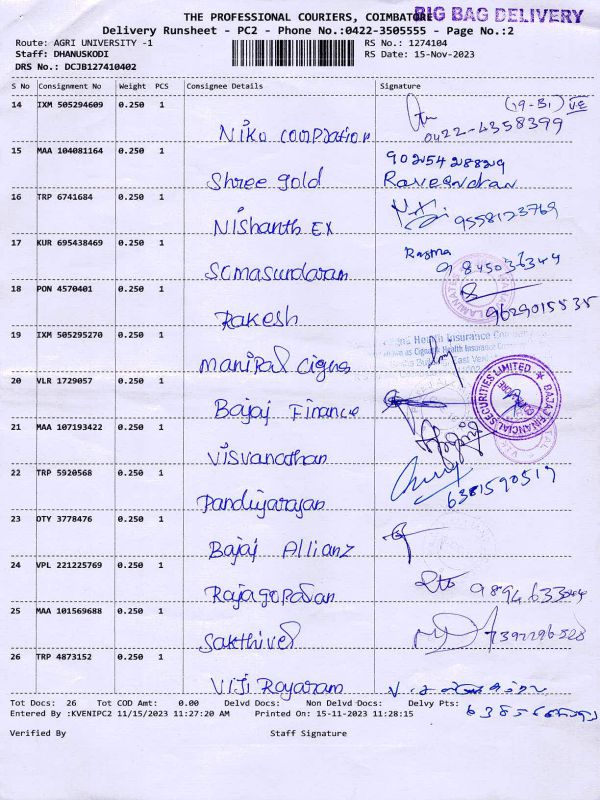 THE PROFESSIONAL COURIERS, COIMBATORE
BIG BAG DELIVERY
Delivery Runsheet - PC2 - Phone No.:0422-3505555 - Page No.:2
Route: AGRI UNIVERSITY -1
RS No.: 1274104
Staff: DHANUSKODI
RS Date: 15-Nov-2023
DRS No.: DCJB127410402
S No Consignment No Weight PCS Consignee Details Signature
14 IXM 505294609 0.250 1
(19-B1) VE
0422-4358399
Niko Coopration
15 MAA 104081164 0.250 1
9025428829
Shree gold Raveendran
16 TRP 6741684 0.250 1
Nishanth EX 9558123769
17 KUR 695438469 0.250 1
Somasundaram
18 PON 4570401 0.250 1
Rakesh 9629015535
19 IXM 505295270 0.250 1
Manipal Cigna
20 VLR 1729057 0.250 1
Bajaj Finance
BAJAJ FINANCIAL SECURITIES LIMITED
21 MAA 107193422 0.250 1
Visvanathan
22 TRP 5920568 0.250 1
Pandiyarajan 6381590519
23 OTY 3778476 0.250 1
Bajaj Allianz
24 VPL 221225769 0.250 1
Rajagopalan
25 MAA 101569688 0.250 1
Sakthivel
26 TRP 4873152 0.250 1
Viji Royaram
Tot Docs: 26 Tot COD Amt: 0.00 Delvd Docs: Non Delvd Docs: Delvy Pts:
Entered By :KVENIPC2 11/15/2023 11:27:20 AM Printed On: 15-11-2023 11:28:15
Verified By Staff Signature